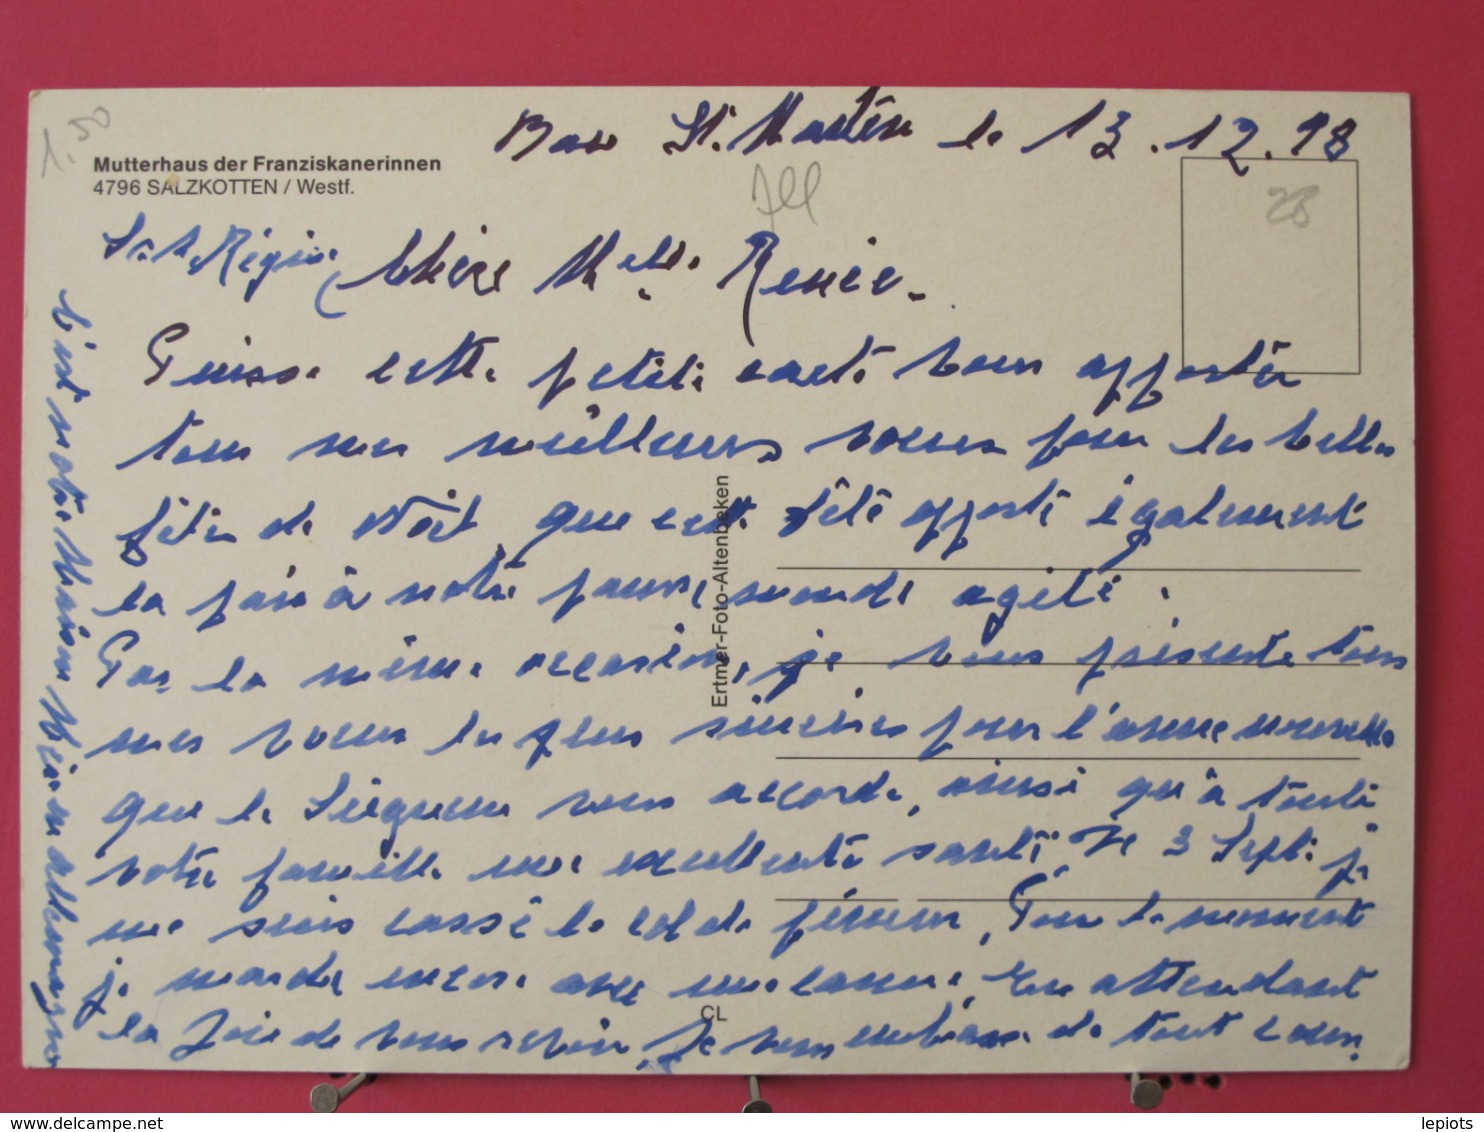 1,50
Ban St. Martin le 13.12.98
Mutterhaus der Franziskanerinnen
4796 SALZKOTTEN / Westf.
All
28
Sr. M. Régine
Chère Melle. Renée.
Puisse cette petite carte vous apporter
tous mes meilleurs voeux pour les belles
fêtes de Noël, que cette fête apporte également
la paix à notre pauvre monde agité.
Par la même occasion, je vous présente tous
mes voeux les plus sincères pour l'année nouvelle
que le Seigneur vous accorde, ainsi qu'à toute
votre famille une excellente santé. Le 3 Sept. je
me suis cassé le col de fémur, Pour le moment
je marche encore avec une canne, En attendant
la Joie de vous revoir, Je vous embrasse de tout coeur.
C'est notre Maison Mère en Allemagne
Ertmer-Foto-Altenbeken
CL
delcampe.net
lepiots